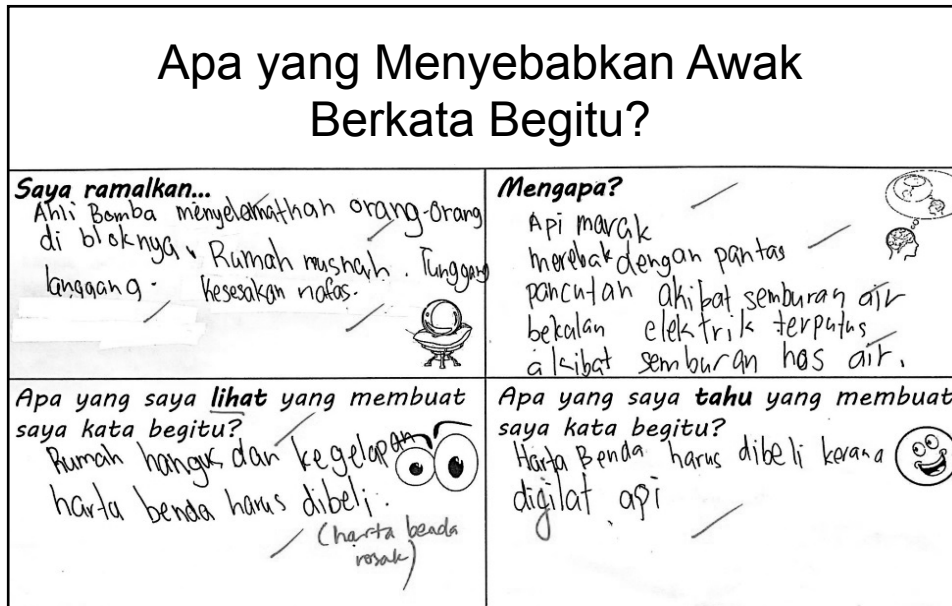 Apa yang Menyebabkan Awak
Berkata Begitu?
Saya ramalkan...
Ahli Bomba menyelamatkan orang-orang
di bloknya. Rumah musnah. Tunggang
langgang. kesesakan nafas.
Mengapa?
Api marak
merebak dengan pantas
pancutan akibat semburan air
bekalan elektrik terputus
akibat semburan hos air.
Apa yang saya lihat yang membuat
saya kata begitu?
Rumah hangus dan kegelapan
harta benda harus dibeli.
(harta benda
rosak)
Apa yang saya tahu yang membuat
saya kata begitu?
Harta Benda harus dibeli kerana
dijilat api